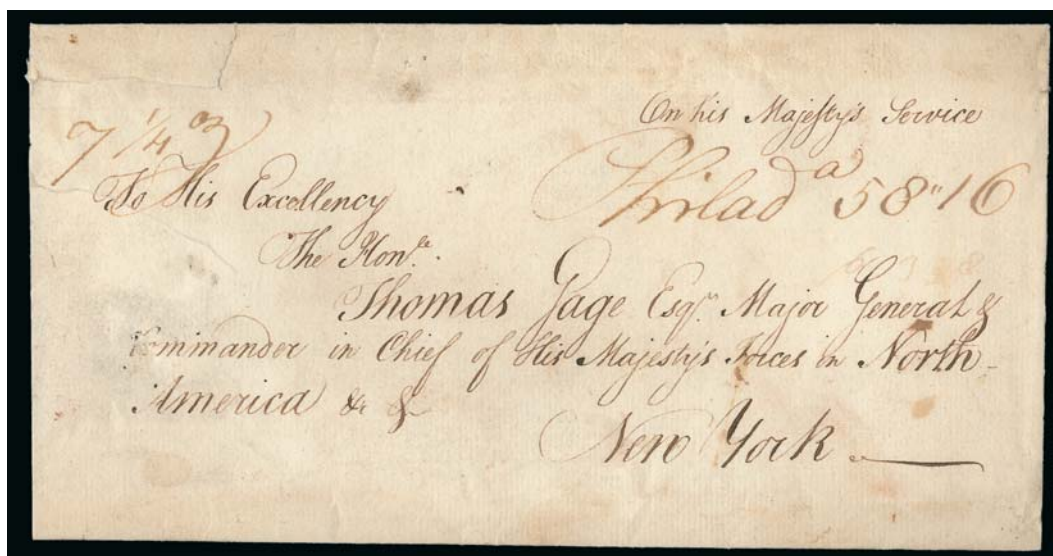 On his Majesty's Service
7 1/4 oz
Philad a 58" 16
To His Excellency
The Hon.ble
Thomas Gage Esq.r Major General &
Commander in Chief of His Majesty's Forces in North
America &c &
New York